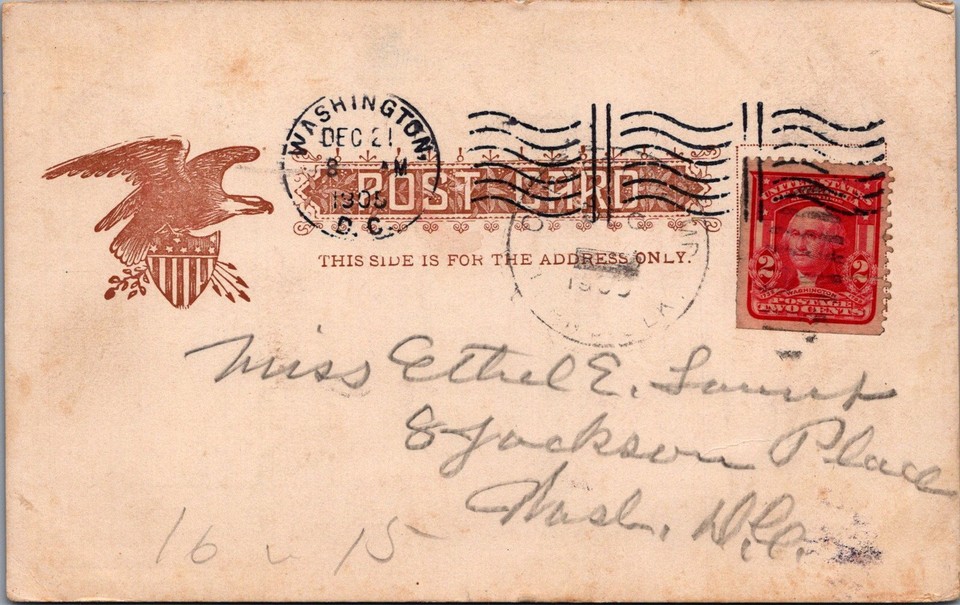 WASHINGTON
DEC 21
8 M
D. C.
POST CARD
THIS SIDE IS FOR THE ADDRESS ONLY.
UNITED STATES
2 2
WASHINGTON
POSTAGE
TWO CENTS
Miss Ethel E.
8 Jackson Place
Wash. D.C.
16 15